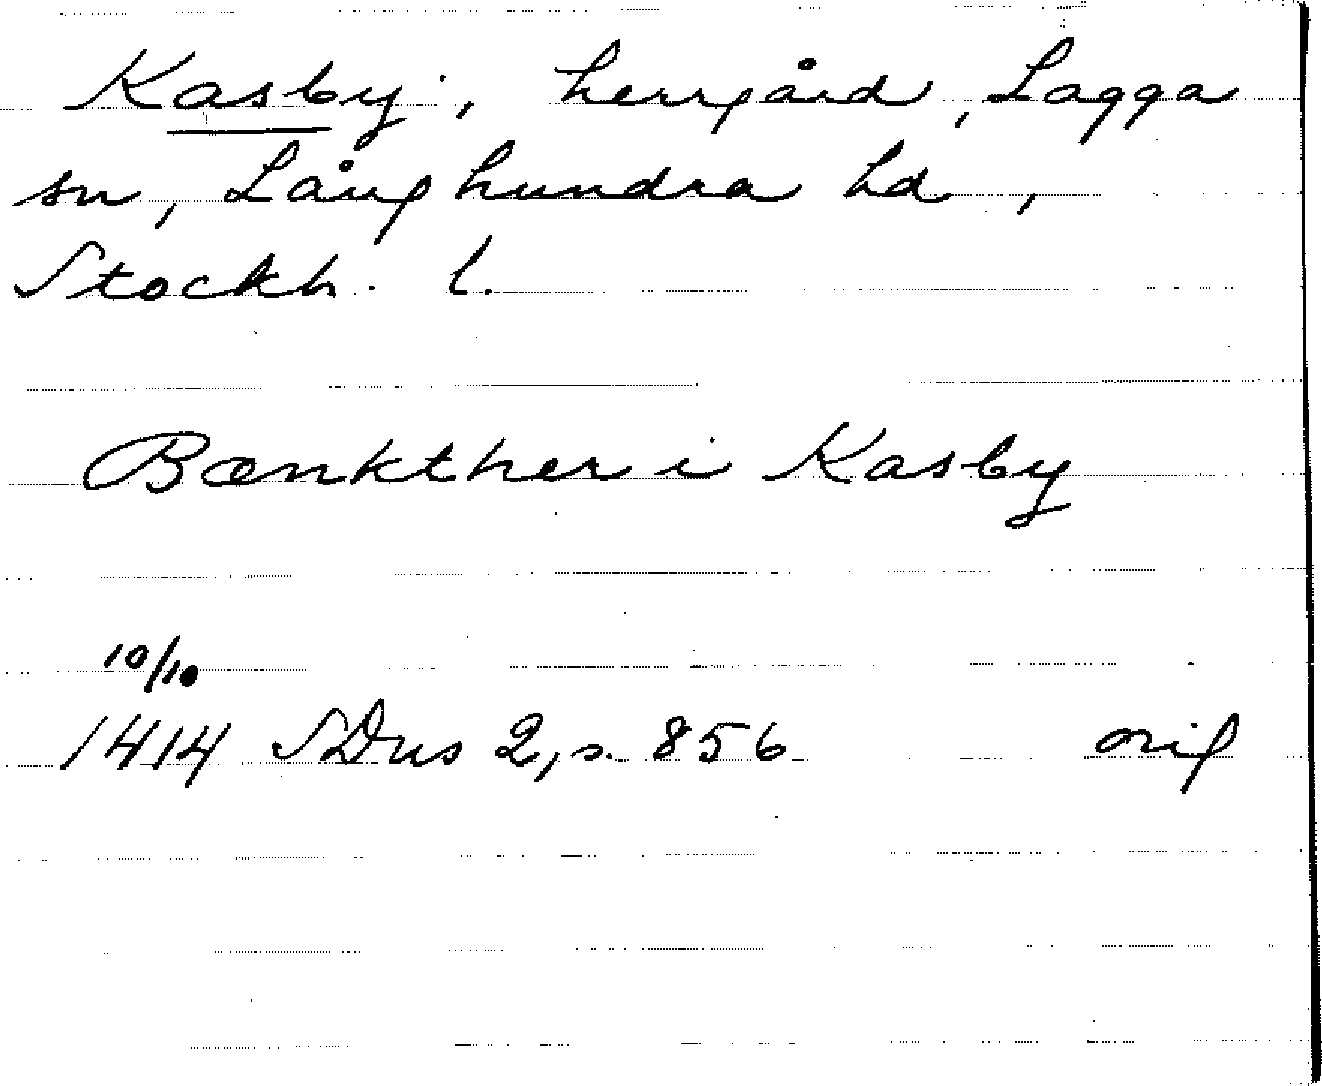 Kasby, herrgård, Lagga
sn, Långhundra hd,
Stockh. l.
Bænkther i Kasby
10/10
1414 SDns 2, s. 856 orig